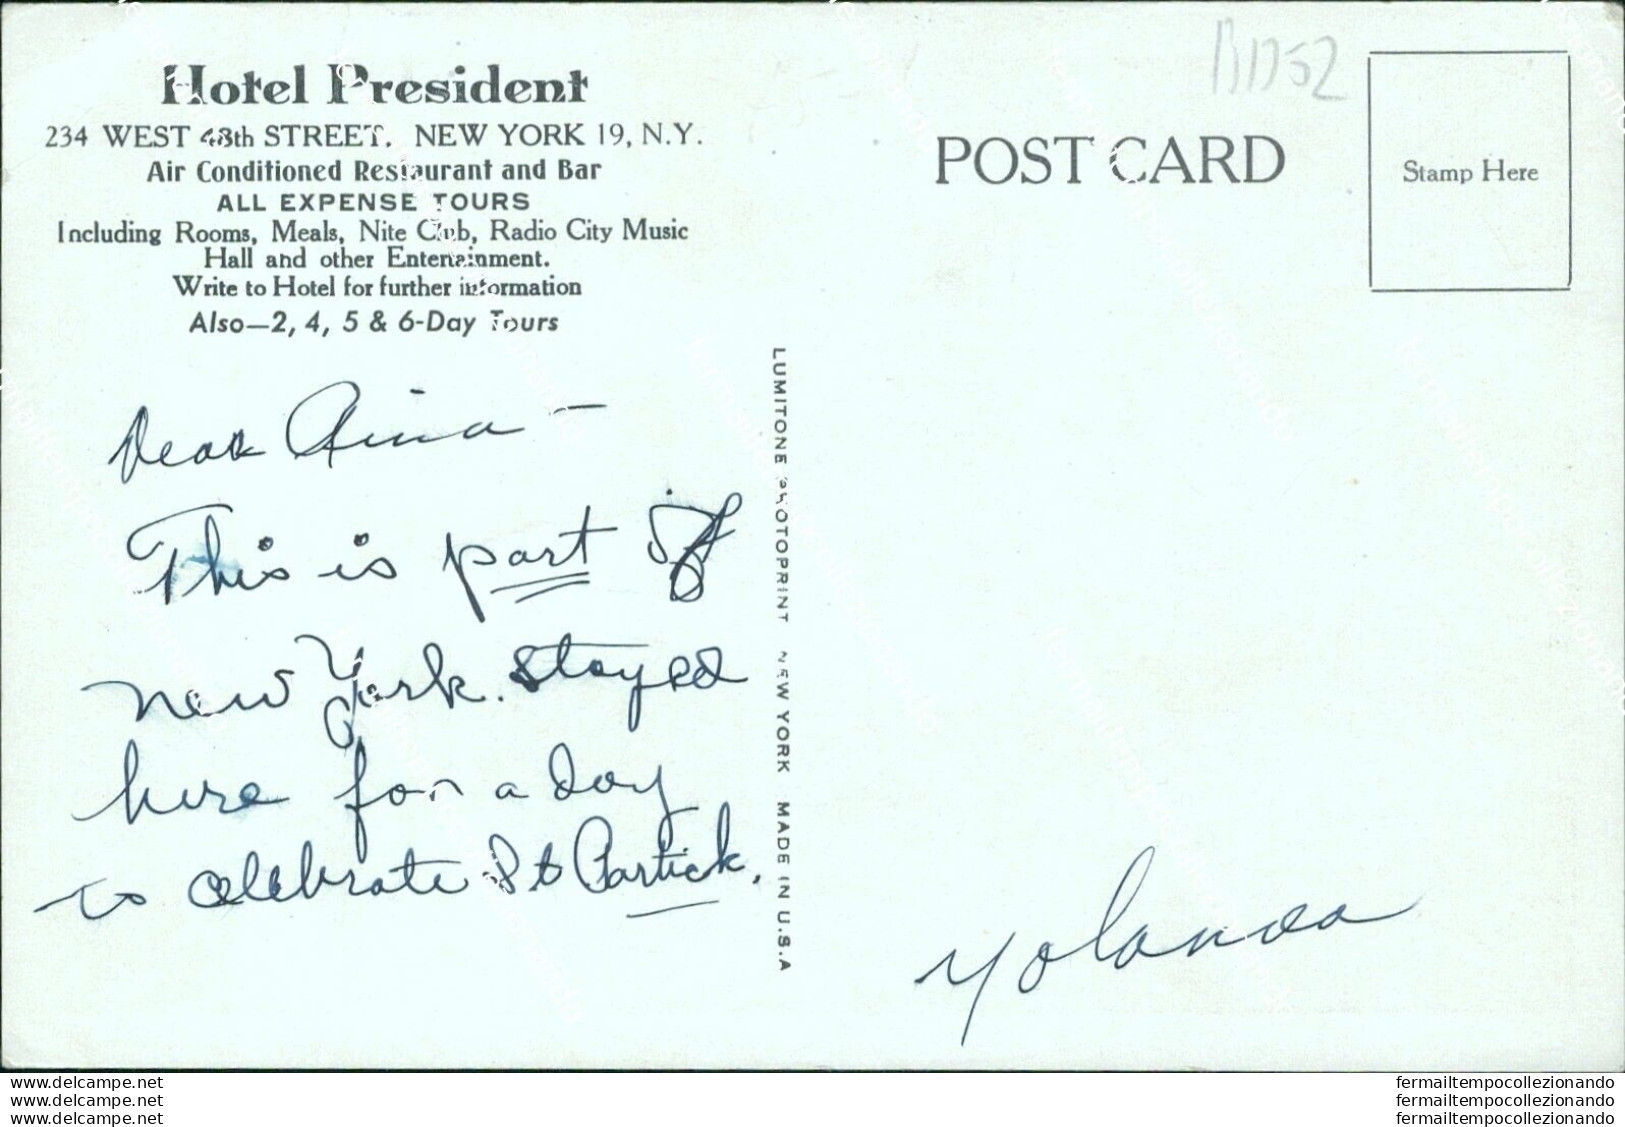 Hotel President
234 WEST 48th STREET, NEW YORK 19, N.Y.
Air Conditioned Restaurant and Bar
ALL EXPENSE TOURS
Including Rooms, Meals, Nite Club, Radio City Music
Hall and other Entertainment.
Write to Hotel for further information
Also—2, 4, 5 & 6-Day Tours
Dear Rina —
This is part of
New York. Stayed
here for a day
to celebrate St Partick.
LUMITONE PHOTOPRINT NEW YORK MADE IN U.S.A
B1752
POST CARD
Stamp Here
Yolanda
www.delcampe.net
www.delcampe.net
www.delcampe.net
fermailtempocollezionando
fermailtempocollezionando
fermailtempocollezionando